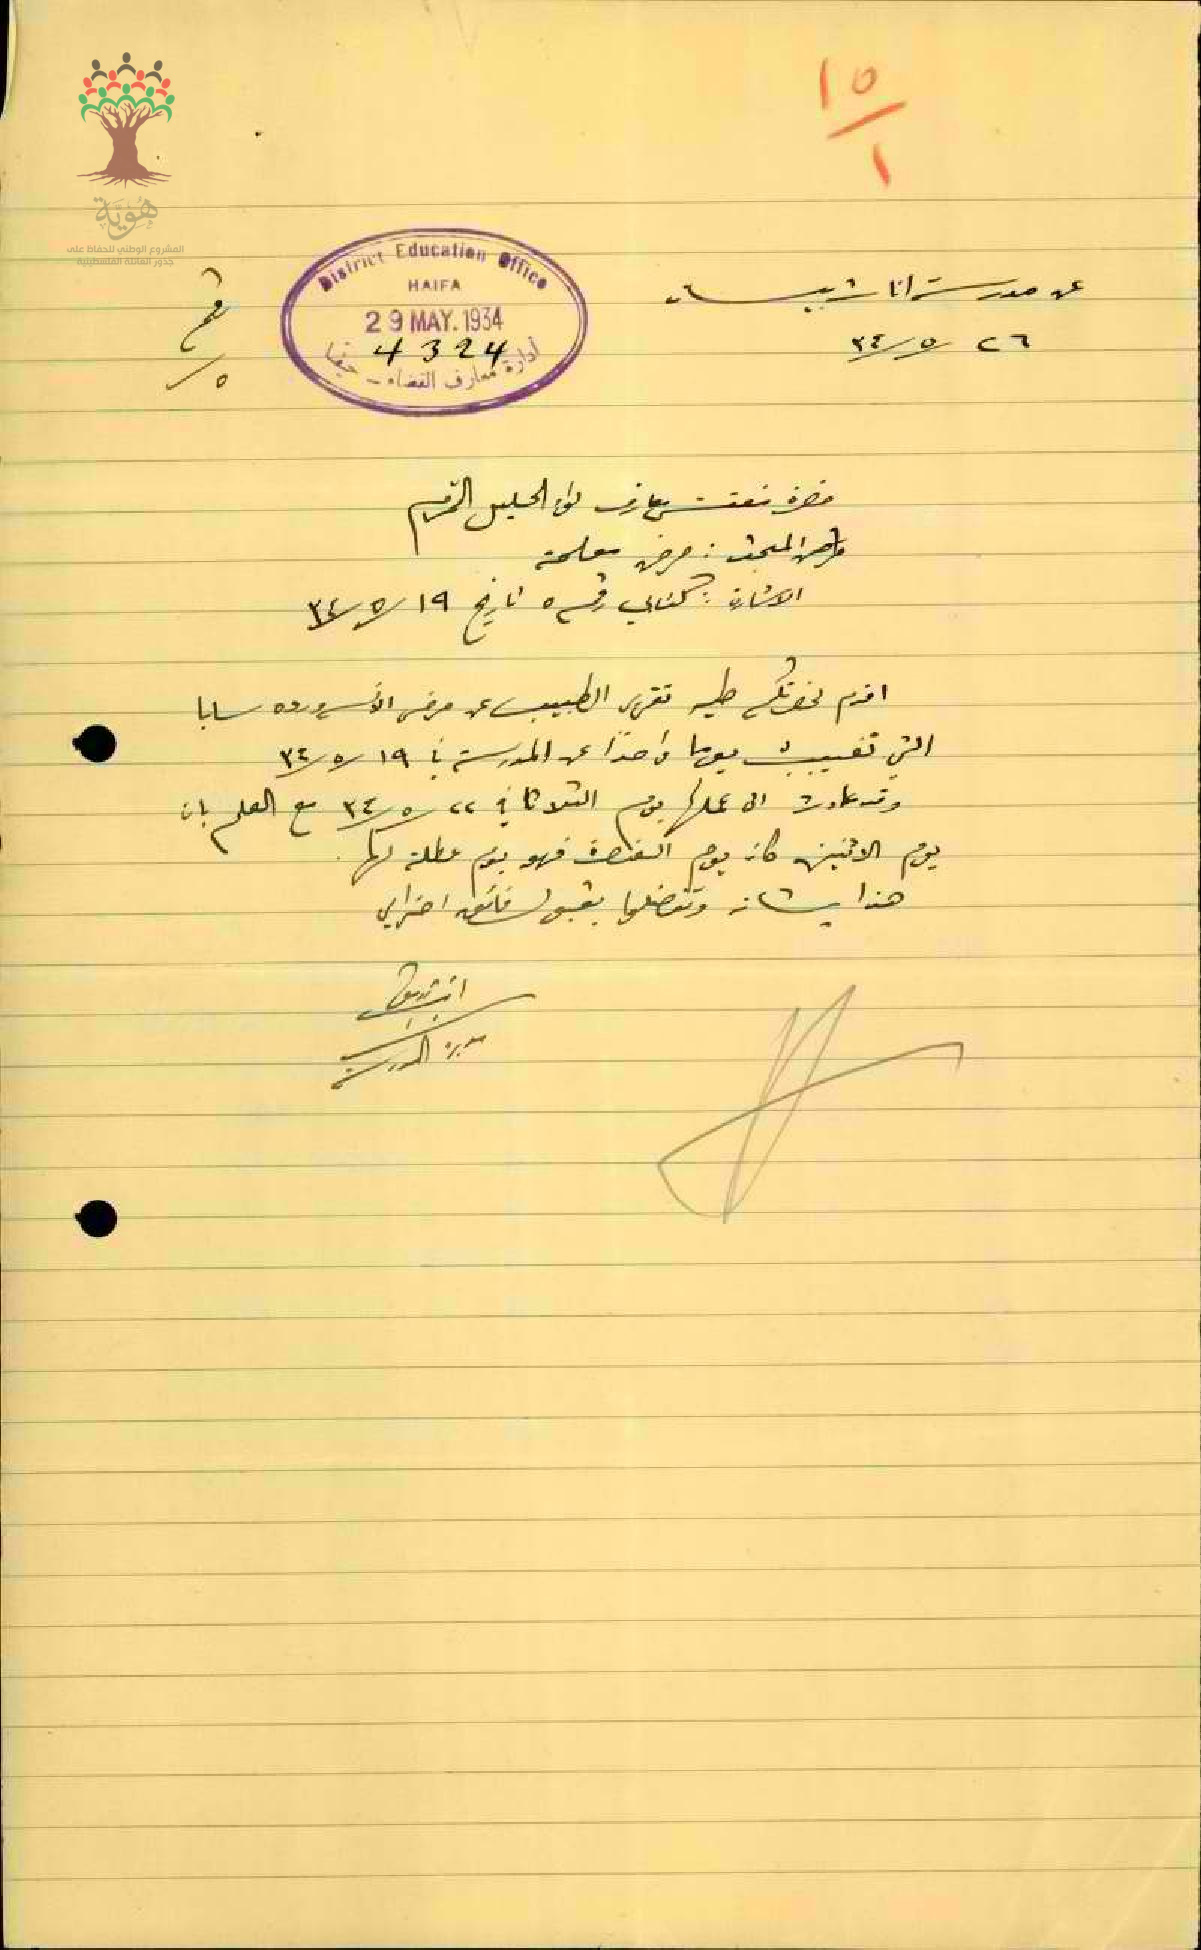 ١٥
١
هُوِيَّة
المشروع الوطني للحفاظ على
جذور العائلة الفلسطينية
District Education Office
HAIFA
29 MAY. 1934
4324
ادارة معارف القضاء - حيفا
عن مدرسة اناث بيسان
٢٦/٥/٣٤
رقم
٥/
حضرة مفتش معارف لواء الجليل المحترم
: مرض معلمة
الاشارة : كتابي رقم ٥ تاريخ ١٩/٥/٣٤
اقدم لحضرتكم طيه تقرير الطبيب عن مرض الآنسة ورده سابا
التي تغيبت يوما واحدًا عن المدرسة في ١٩/٥/٣٤
وقد عادت الى عملها يوم الثلاثا في ٢٢/٥/٣٤ مع العلم بان
يوم الاثنين كان يوم العنصرة فهو يوم عطلة لها.
هذا بشأنه وتفضلوا بقبول فائق احترامي
مديرة المدرسة